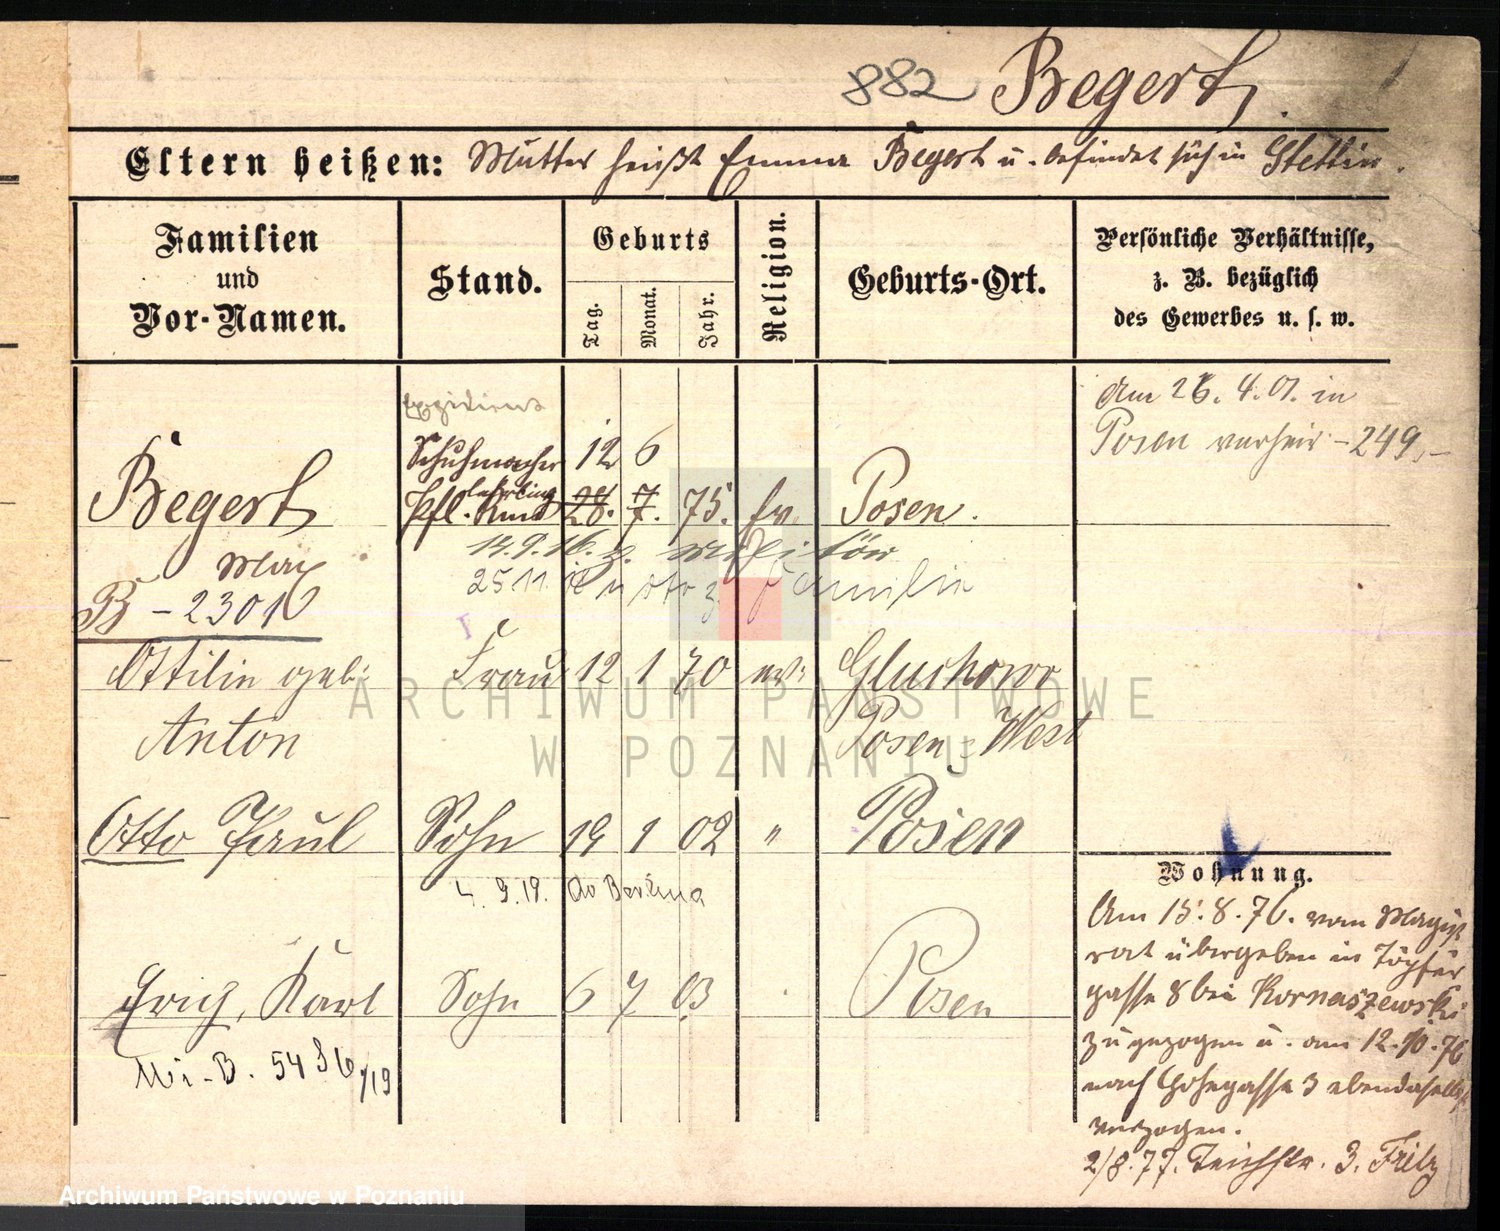 882 Begert
Eltern heißen: Mutter heißt Emma Begert u. befindet sich in Stettin.
Familien und Vor-Namen.
Stand.
Geburts
Tag. Monat. Jahr.
Religion.
Geburts-Ort.
Persönliche Verhältnisse, z. B. bezüglich des Gewerbes u. s. w.
Am 26. 4. 01. in
Posen verheir - 249,-
Schuhmacher 12 6
lehrling
Begert Pfl. Kind 28. 7. 75. ev. Posen.
14.9.16. z. Militär
Max
25 11 zur Familie
B - 2301
Ottilie geb: Frau 12 1 70 ev. Gluchowo
Anton Posen-West
Otto Paul Sohn 19 1 02 " Posen
4. 9. 19. av Berlin
Erich, Karl Sohn 6 7 03 Posen
Mi-B. 5486/19
Wohnung.
Am 15. 8. 76. vom Magist
rat übergeben in Töpfer
gasse 8 bei Kornaszewski
zugezogen u. am 12.10.76
nach Hohegasse 3 ebendaselbst
verzogen.
2/8.77. Teichstr. 3. Fritz
ARCHIWUM PAŃSTWOWE
W POZNANIU
Archiwum Państwowe w Poznaniu